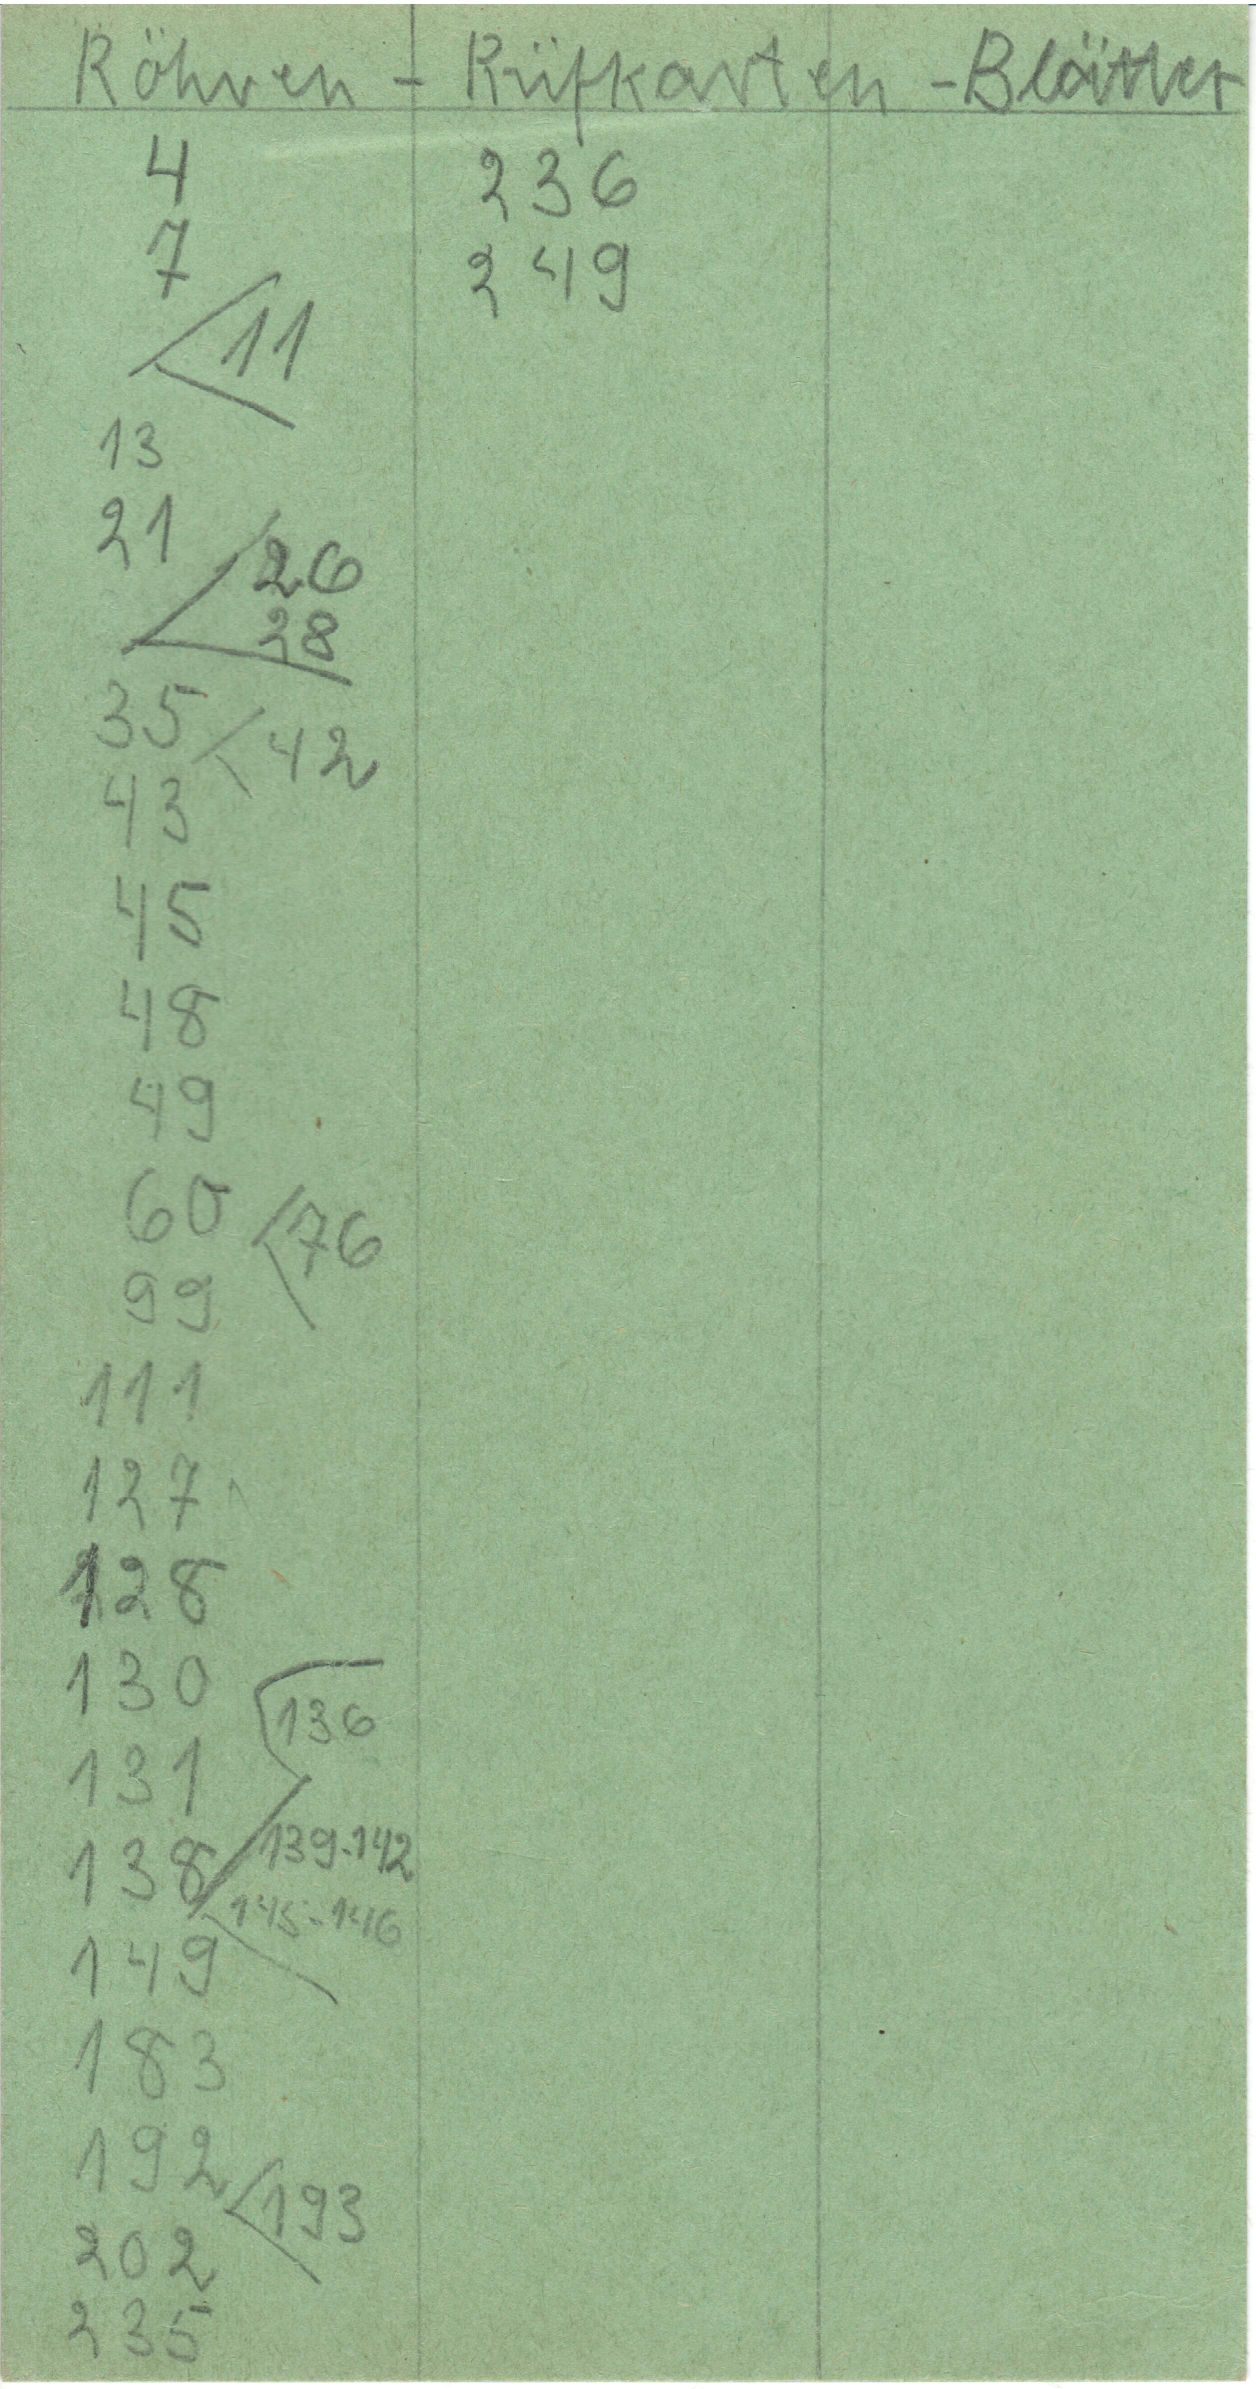 Röhren - Prüfkarten - Blätter
4 236
7 249
11
13
21
26
28
35 42
43
45
48
49
60 76
99
111
127
128
130
136
131
138 139-142
145-146
149
183
192
193
202
235